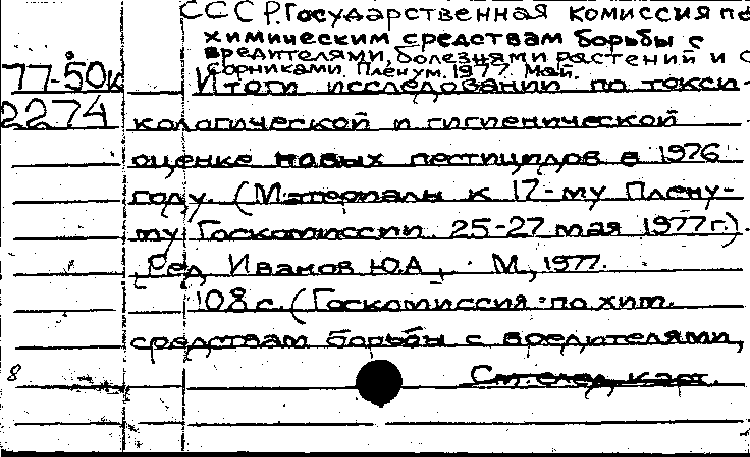 СССР. Государственная комиссия по
химическим средствам борьбы с
вредителями, болезнями растений и с
сорниками. Пленум. 1977. Май.
77-50к
Итоги исследований по токси-
2274
кологической и гигиенической
оценке новых пестицидов в 1976
году. (Материалы к 17-му Плену-
му Госкомиссии 25-27 мая 1977 г.).
[Ред. Иванов Ю.А.]. М., 1977.
108 с. (Госкомиссия по хим.
средствам борьбы с вредителями,
8
См. след. карт.